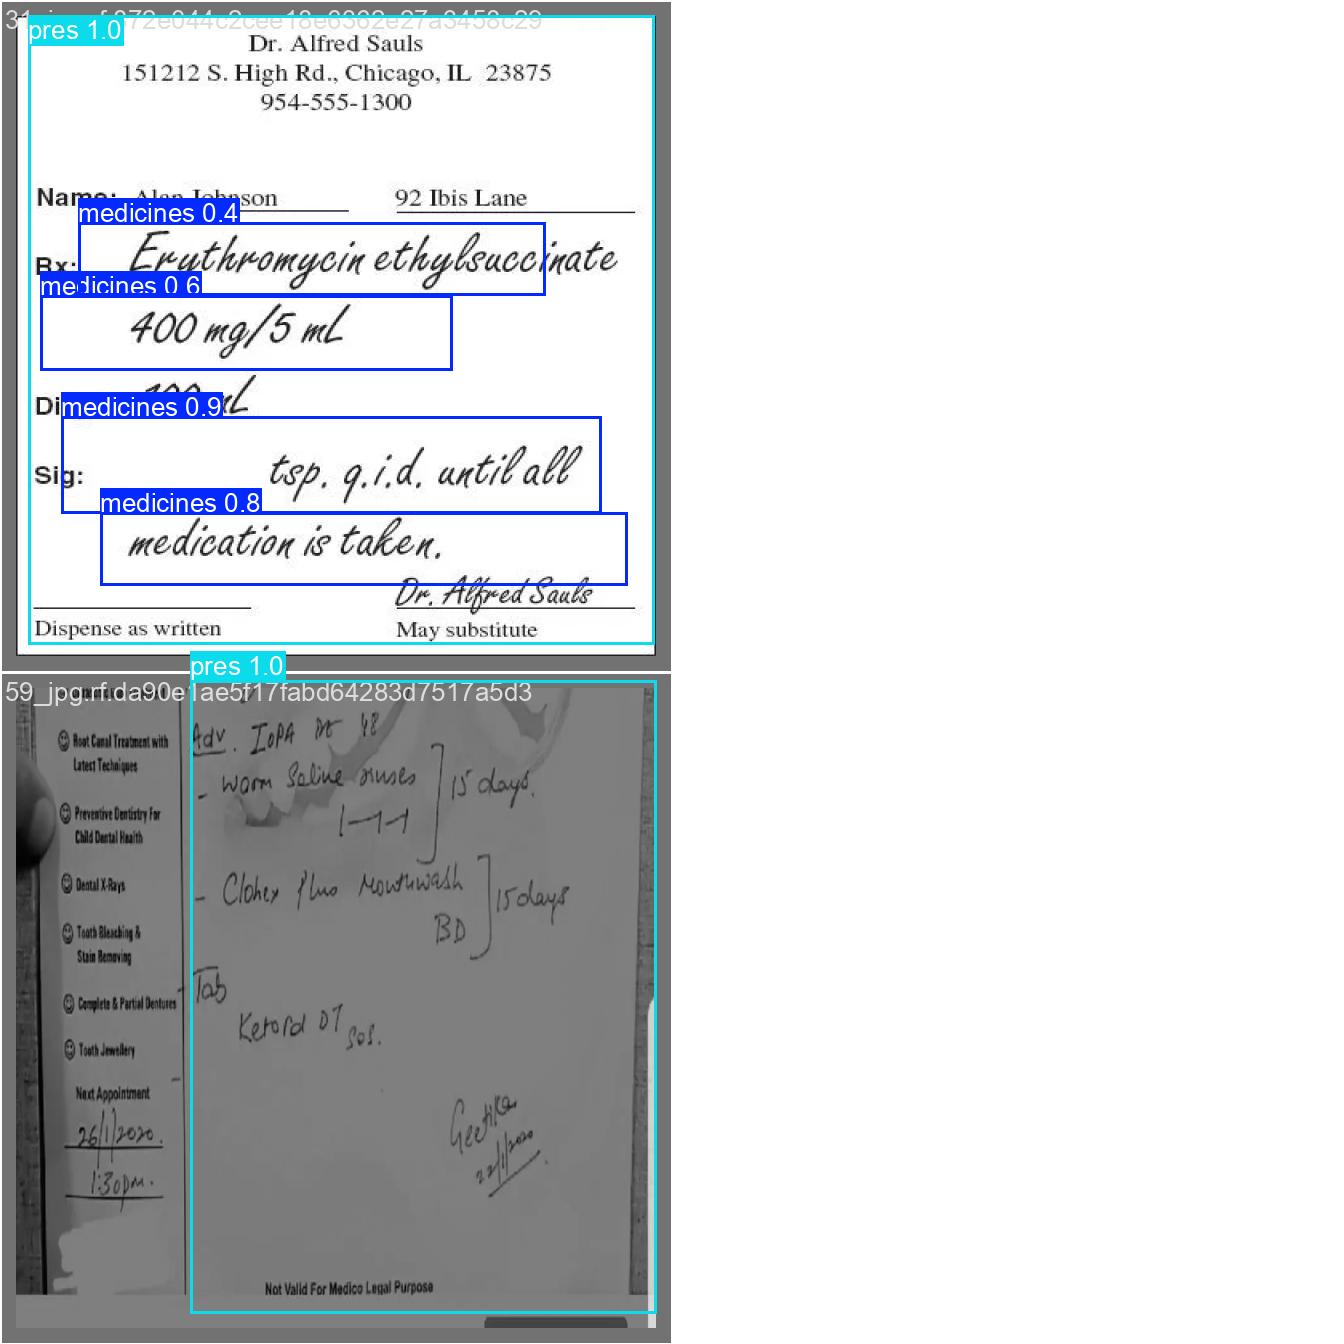 pres 1.0
Dr. Alfred Sauls
151212 S. High Rd., Chicago, IL 23875
954-555-1300
Name: Alan Johnson 92 Ibis Lane
medicines 0.4
Rx: Erythromycin ethylsuccinate
medicines 0.6
400 mg/5 mL
medicines 0.9
Sig: tsp. q.i.d. until all
medicines 0.8
medication is taken.
Dr. Alfred Sauls
Dispense as written May substitute
pres 1.0
59_jpg.rf.da90e1ae5f17fabd64283d7517a5d3
Root Canal Treatment with
Latest Techniques
Preventive Dentistry For
Child Dental Health
Dental X-Rays
Tooth Bleaching &
Stain Removing
Complete & Partial Dentures
Tooth Jewellery
Next Appointment
26/1/2020.
1:30pm.
Adv. IOPA 48
- Warm Saline rinses 15 days.
1-1-1
- Clohex Plus Mouthwash 15 days
BD
Tab
Ketorol DT SOS.
Geetika
22/1/2020
Not Valid For Medico Legal Purpose